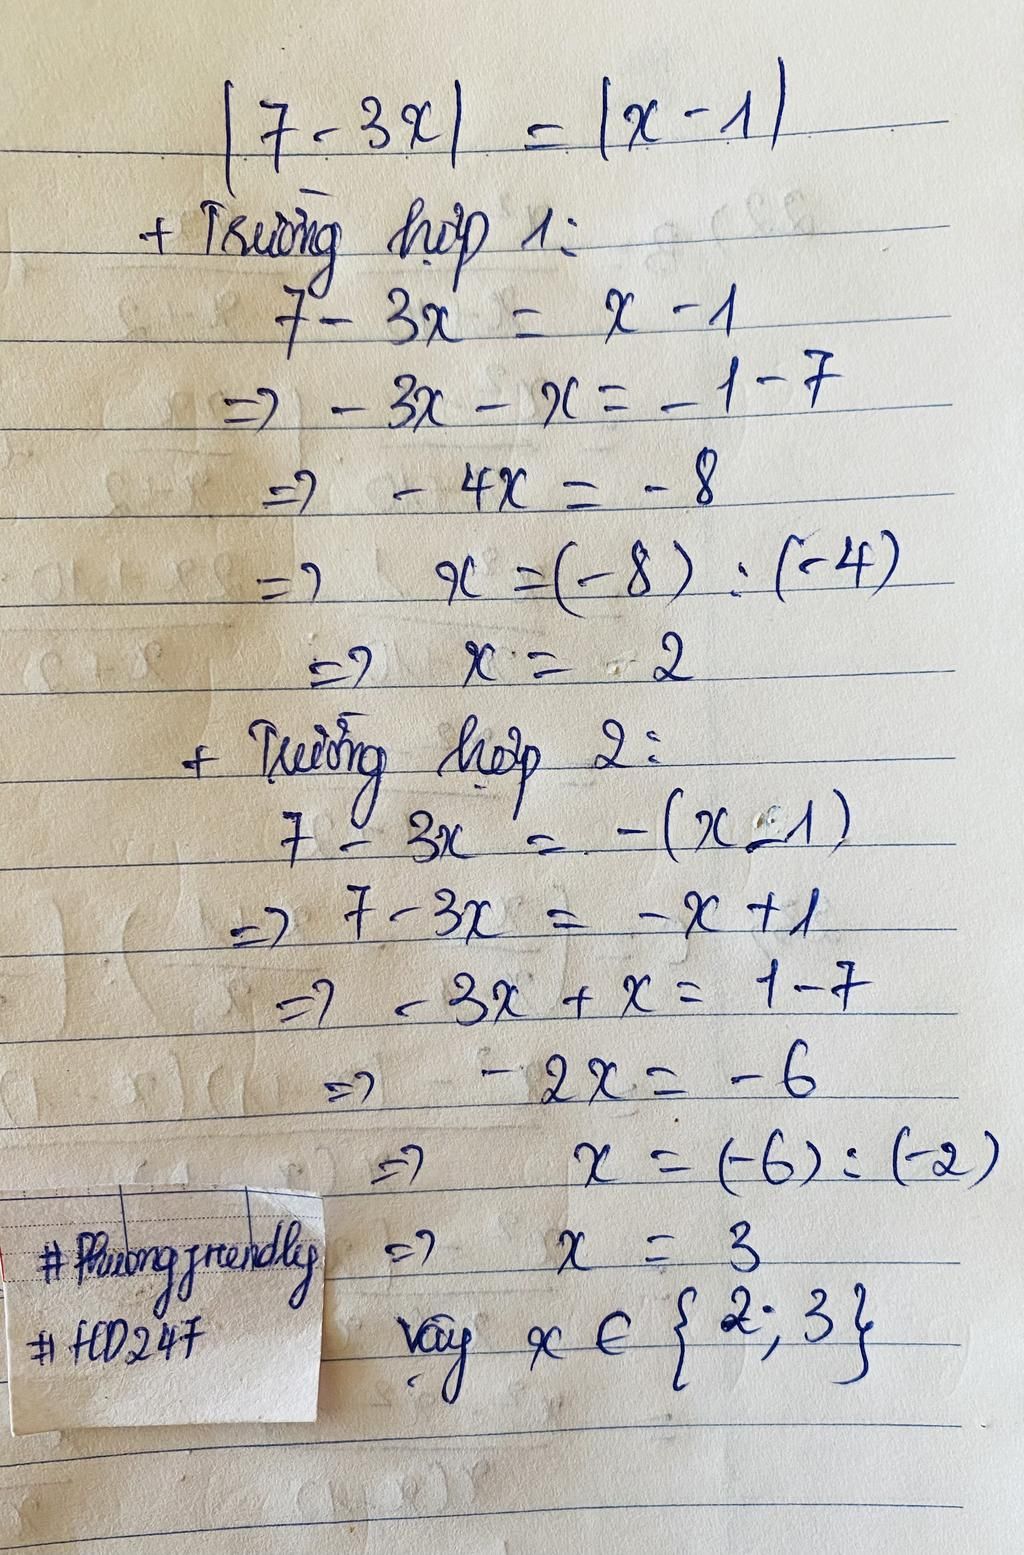 |7 - 3x| = |x - 1|
+ Trường hợp 1:
7 - 3x = x - 1
=> - 3x - x = - 1 - 7
=> - 4x = - 8
=> x = (-8) : (-4)
=> x = 2
+ Trường hợp 2:
7 - 3x = -(x - 1)
=> 7 - 3x = - x + 1
=> - 3x + x = 1 - 7
=> - 2x = - 6
=> x = (-6) : (-2)
=> x = 3
Vậy x ∈ {2; 3}
# Phuongfriendly
# HD247